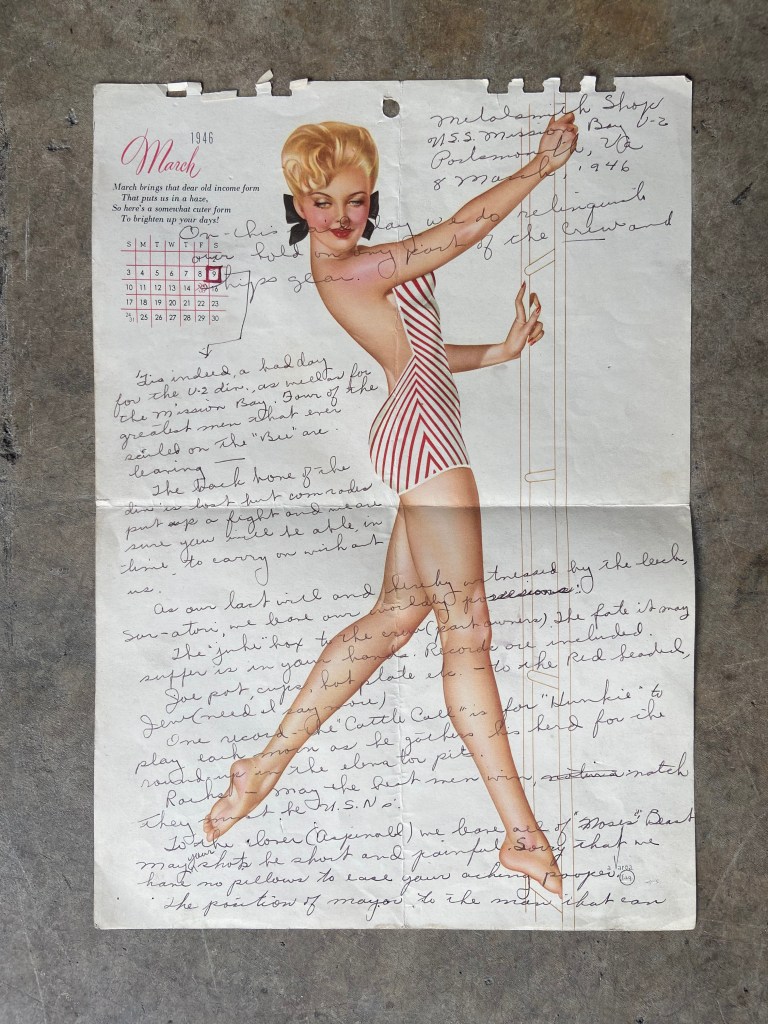 1946
March
March brings that dear old income form
That puts us in a haze,
So here's a somewhat cuter form
To brighten up your days!
S M T W T F S
1 2
3 4 5 6 7 8 9
10 11 12 13 14 16
17 18 19 20 21 22 23
24/31 25 26 27 28 29 30
Metalsmith Shop
U.S.S. Mission Bay V-2
Portsmouth, Va
8 March, 1946
On this day we do relinquish
our hold on any part of the crew and
ships gear.
'Tis indeed, a bad day
for the V-2 div., as well as for
the Mission Bay. Four of the
greatest men that ever
sailed on the "Bee" are
leaving —
The back bone of the
div is lost but comrades
put up a fight and we are
sure you will be able, in
time to carry on without
us. -
As our last will and hereby witnessed by the
we leave our worldly possesions:
The "juke" box to the crew (part owners) The fate it may
suffer is in your hands. Records are included.
Joe pot, cups, hot plate etc. - to the Red headed,
Jew (need I say more)
One record - the "Cattle Call" is for "Hunkie" to
play each morn as he gathers his herd for the
round-up in the elevator pit.
- May the best men win, match
they must be U.S.N's.
To the lover (Aspinald) we leave all of "Moses", Beast
may your shots be short and painful. Sorry that we
have no pillows to ease your aching pooper.
The position of mayor to the man that can